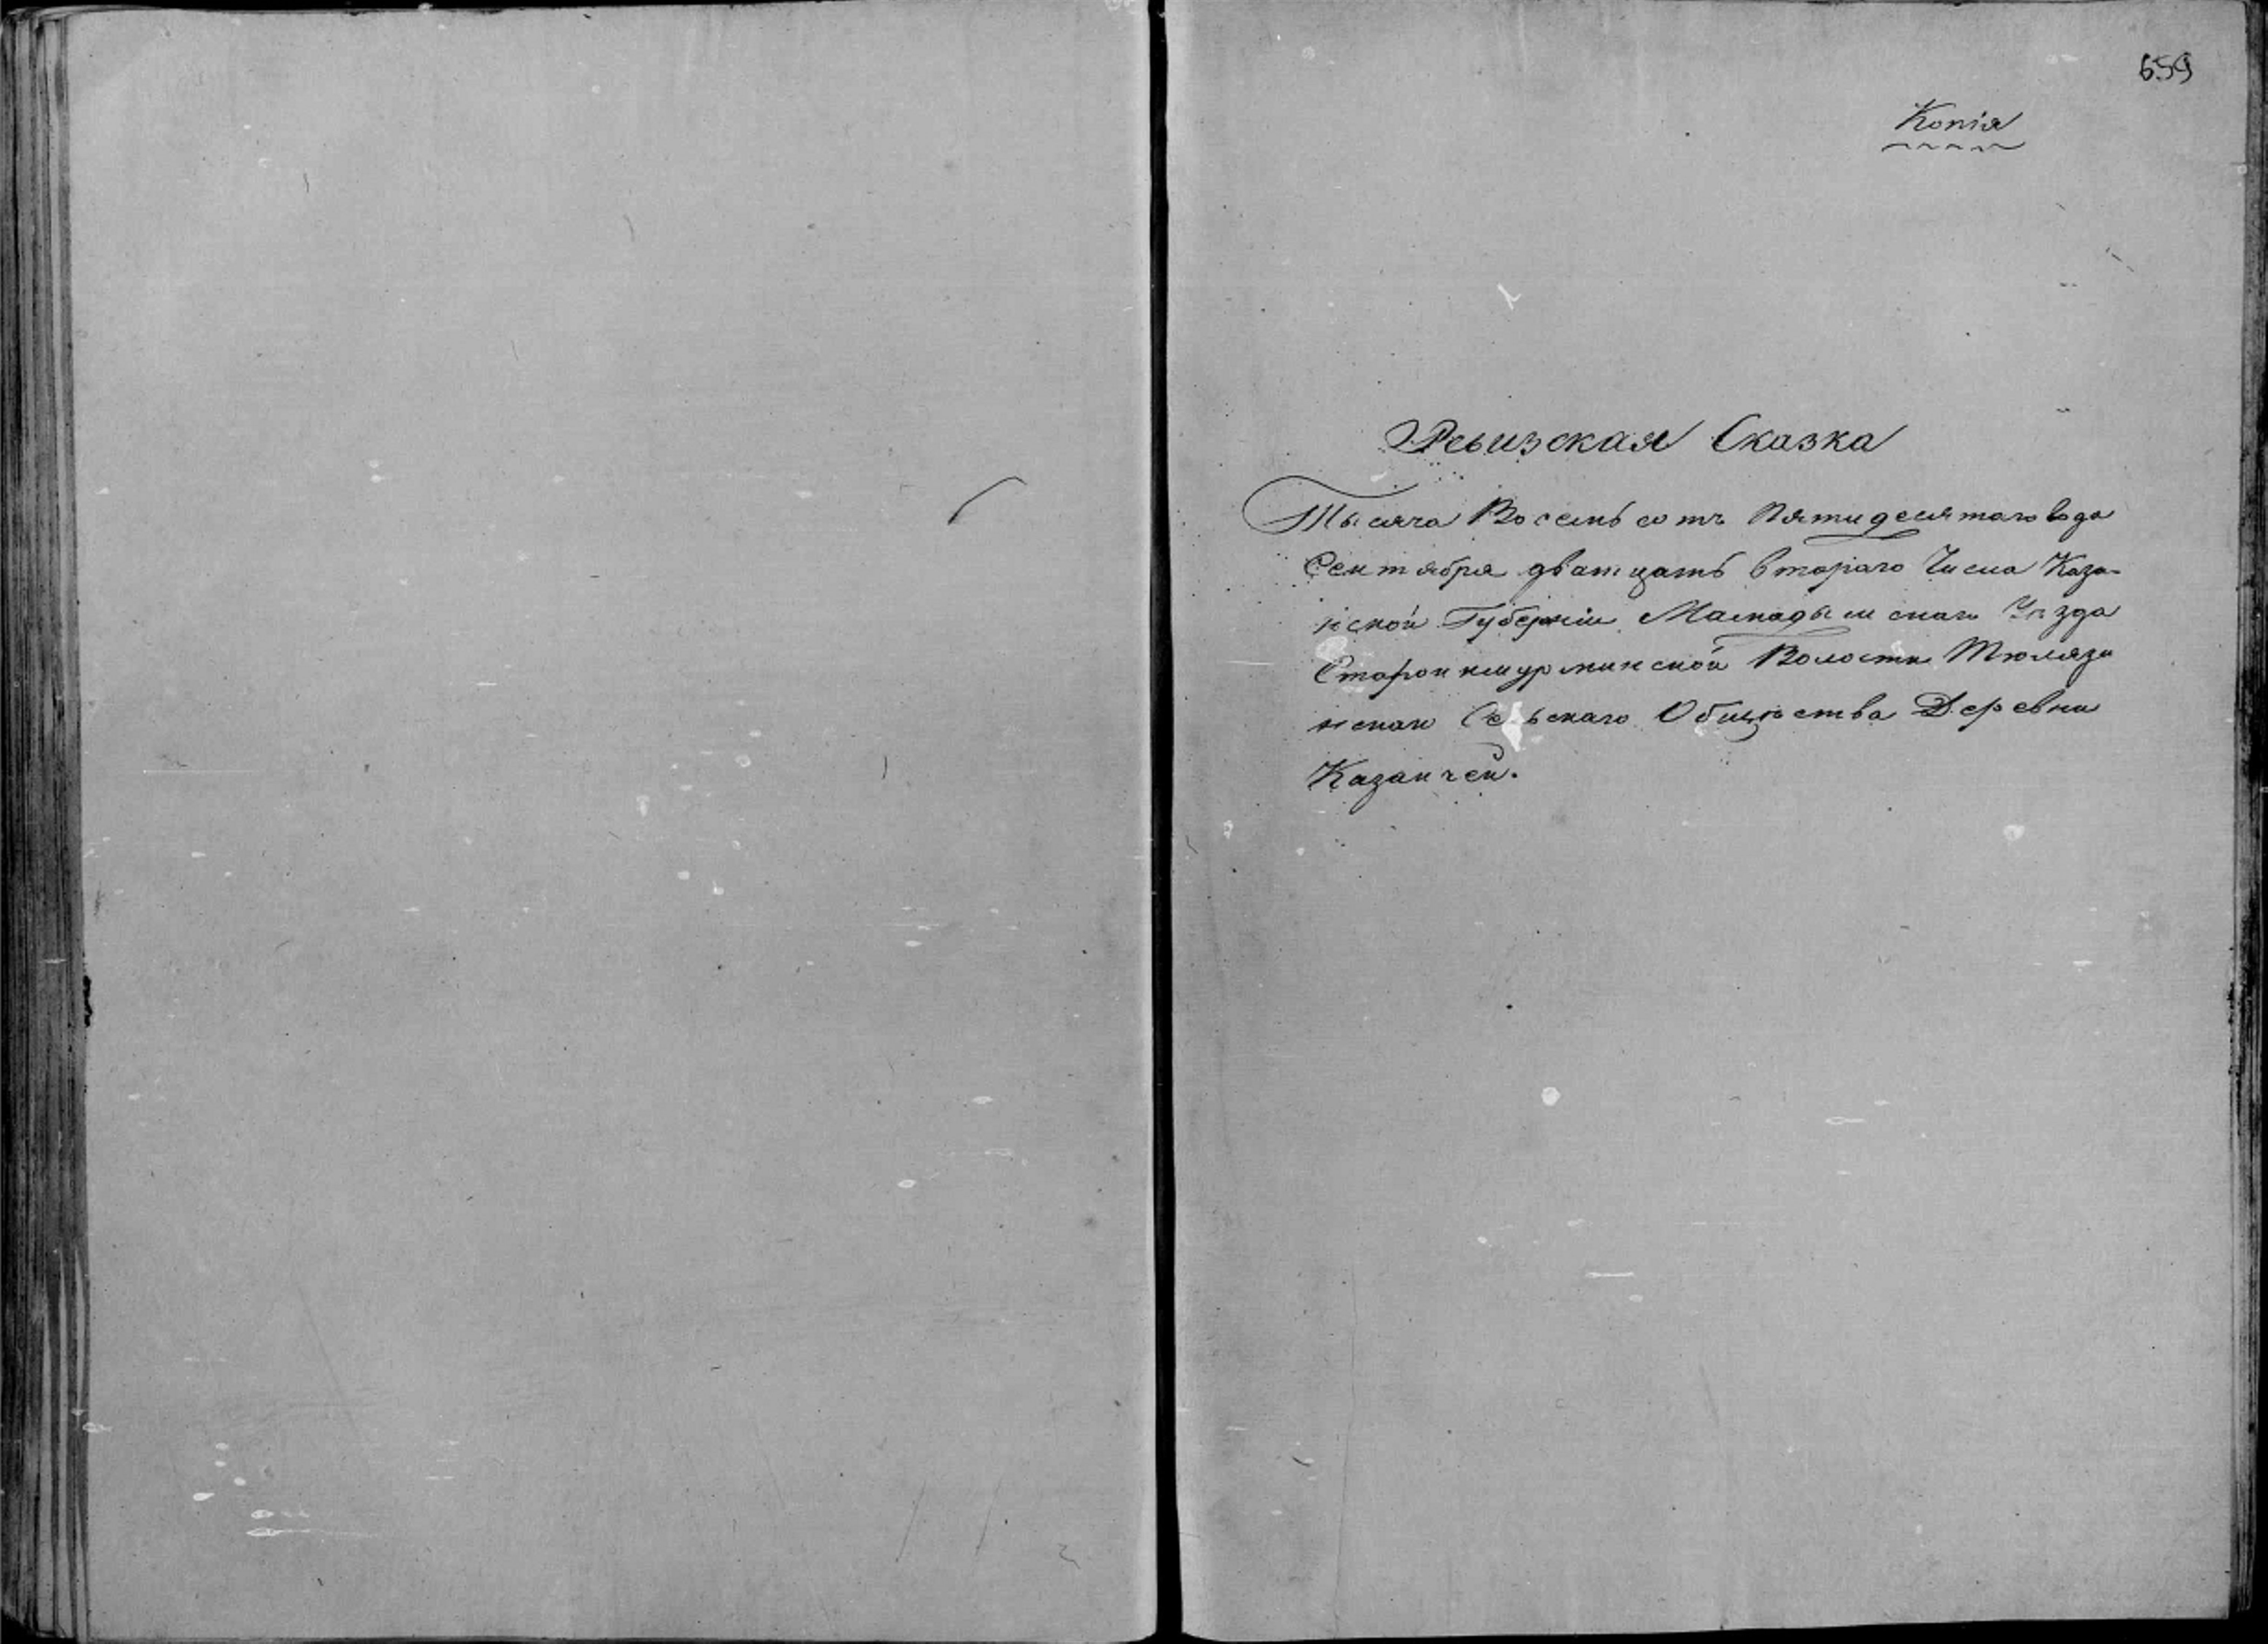 659
Копія
Ревизская Сказка
Тысяча Восемь сотъ Пятидесятаго года
Сентября дватцать втораго Числа Каза-
нской Губерніи Мамадышскаго Уѣзда
Старои кшурминской Волости Тюлязи
нскаго Сельскаго Общѣства Деревни
Казанчей.